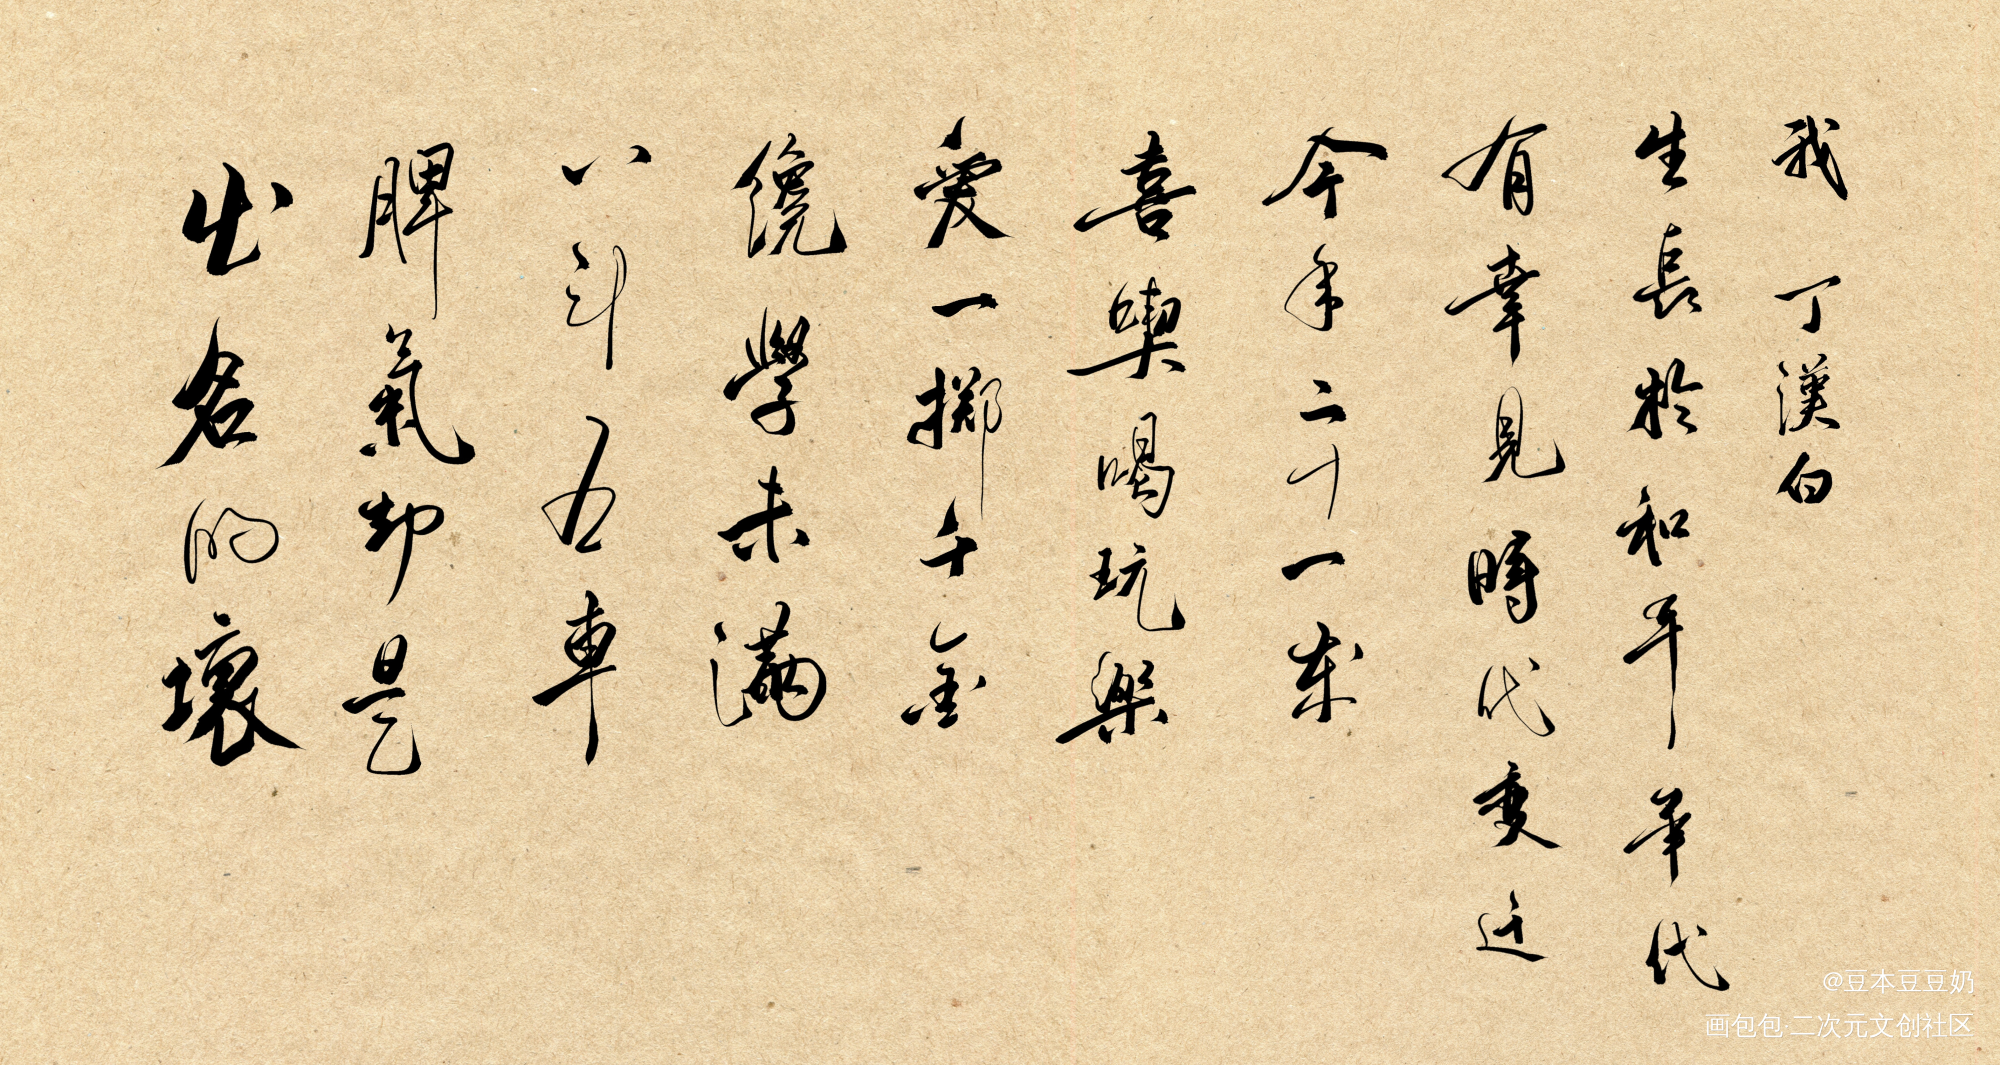 我 丁漢白
生長於和平年代
有幸見時代变迁
今年二十一歲
喜喫喝玩樂
愛一擲千金
纔學未滿
八斗五車
脾氣却是
出名的壞
@豆本豆豆奶
画包包·二次元文创社区